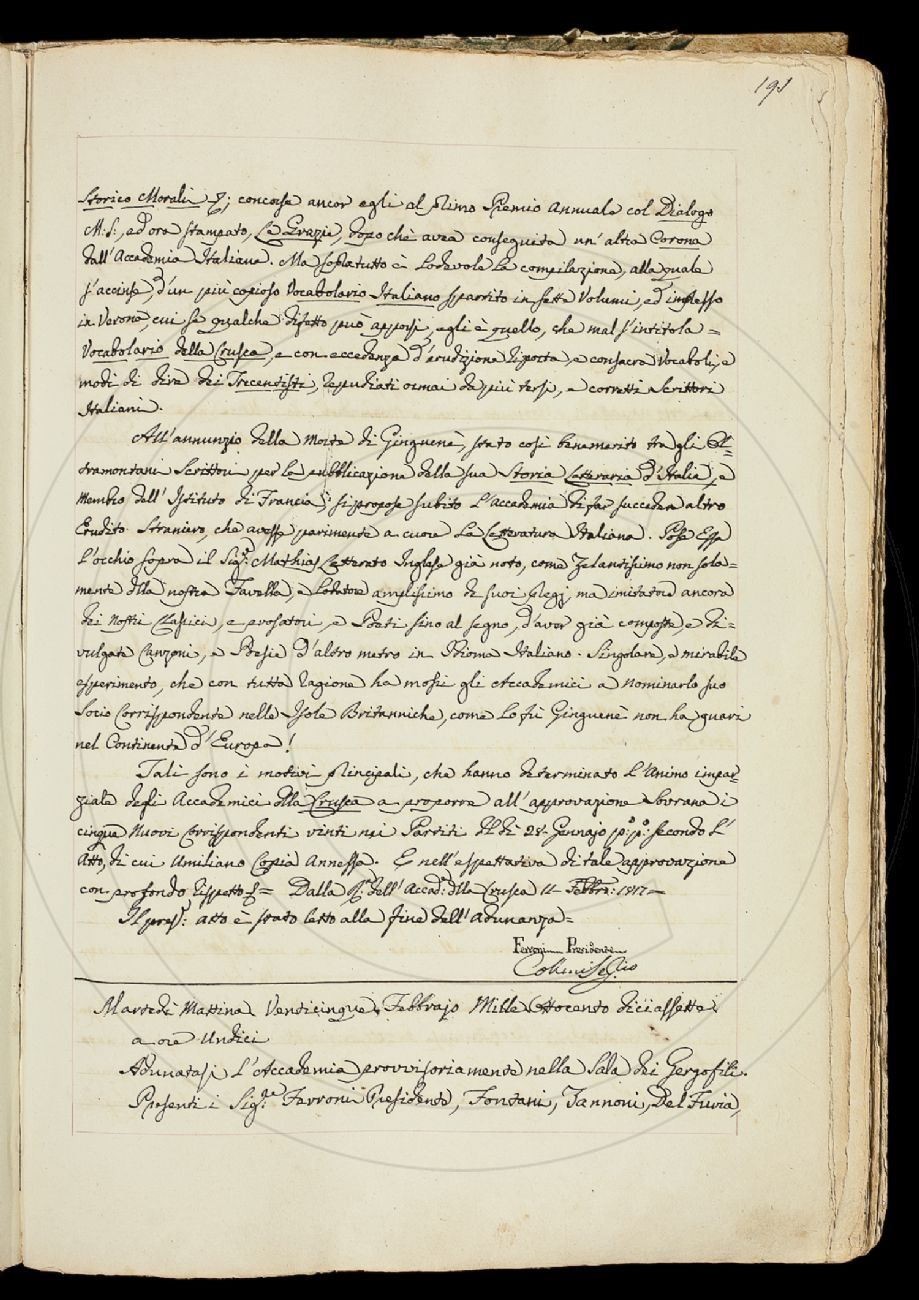 191
Storico Morali &; concorse ancor egli al primo Premio annuale col Dialogo
M.S., ed ora stampato, Le Grazie, dopo che avea conseguita un' altra Corona
dall' Accademia Italiana. Ma soprattutto è Lodevole la compilazione, alla quale
s' accinse, d' un più copioso Vocabolario Italiano spartito in sette Volumi, ed impresso
in Verona, cui se qualche difetto può apporsi, egli è quello, che mal s' intitola =
Vocabolario della Crusca, e con eccedenza d' erudizione riporta, e consacra Vocaboli, e
modi di dire dei Trecentisti, repudiati ormai da più tersi, e corretti Scrittori
Italiani.
All' annunzio della Morte di Ginguenè, stato così benemerito tra gli Ol=
tramontani Scrittori per la pubblicazione della sua Storia Letteraria d' Italia, e
Membro dell' Istituto di Francia, si propose subito L' Accademia di far succedere altro
Erudito Straniero, che avesse parimente a cuore La Letteratura Italiana. Pose Essa
L' occhio sopra il Sig.r Mathias Letterato Inglese già noto, come Zelantissimo non sola=
mente della nostra Favella, e Lodatore amplissimo de suoi pregj, ma imitatore ancora
dei nostri Classici, e prosatori, e Poeti sino al segno, d' aver già composte, e di=
vulgate Canzoni, e Poesie d' altro metro in Idioma Italiano. Singolare, e mirabile
esperimento, che con tutta ragione ha mossi gli Accademici a nominarlo suo
Socio Corrispondente nelle Isole Britanniche, come Lo fù Ginguenè non ha guari
nel Continente d' Europa!
Tali sono i motivi principali, che hanno determinato L' Animo impar=
ziale degli Accademici della Crusca a proporre all' approvazione Sovrana i
cinque Nuovi Corrispondenti vinti nei Partiti del dì 28. Gennajo p.o p.o secondo L'
Atto, di cui Umiliano Copia Annessa. E nell' espettativa di tale approvazione
con profondo rispetto &= Dalla R.a dell' Accad.a della Crusca 11 Febbr: 1817=
Il pres.e atto è stato letto alla fine dell' adunanza=
Ferroni Presidente
Collini Seg.rio
Martedì Mattina Venticinque Febbrajo Mille Ottocento diciassette
a ore Undici
Adunatasi L' Accademia provvisoriamente nella Sala dei Gergofili.
Presenti i Sig.ri Ferroni Presidente, Fontani, Zannoni, Del Furia,